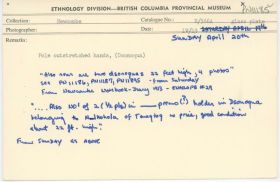 PN11185
ETHNOLOGY DIVISION—BRITISH COLUMBIA PROVINCIAL MUSEUM
Collection: Newcombe Catalogue No.: glass plate
Photographer: Date: SATURDAY APRIL
SUNDAY APRIL 20th
Remarks:
Pole outstretched hands, (Dsonoqua)
"Also near are two dsonoquas 22 feet high, 4 photos"
see PN 11186, PN11187, PN11195 - from Saturday
From Newcombe notebook - Diary 1913 -
"... Also No1 of 2 (½ pls) in promo(?) holder is Dsonoqua
belonging to of no price, good condition
about 22 ft. high."
From Sunday as above